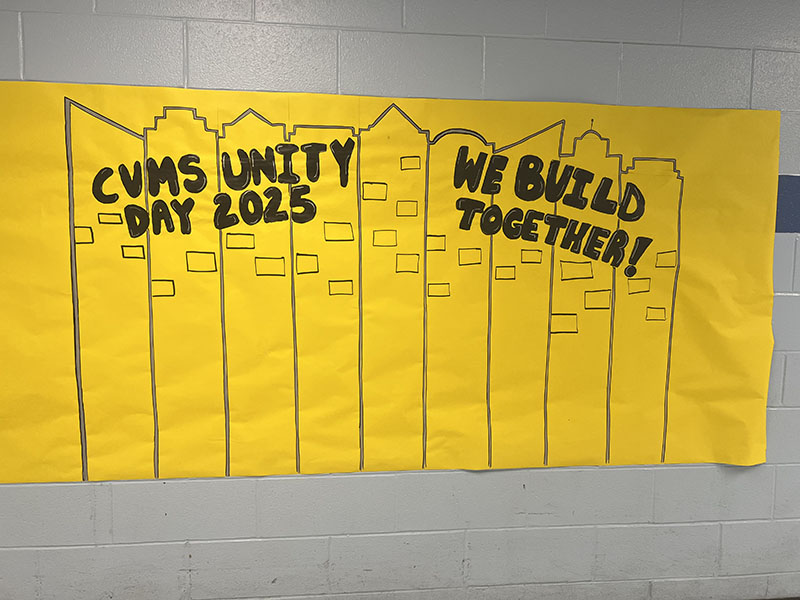 CVMS UNITY
DAY 2025
WE BUILD
TOGETHER!